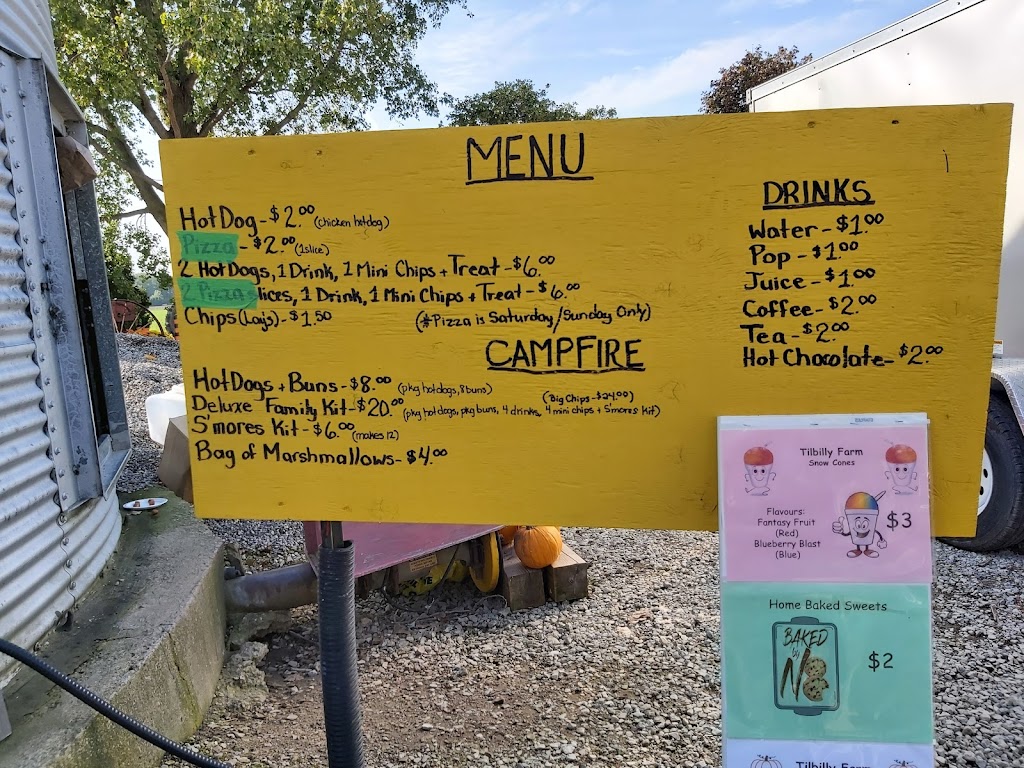 MENU
HotDog - $2.00 (chicken hotdog)
Pizza - $2.00 (1 slice)
2 HotDogs, 1 Drink, 1 Mini Chips + Treat - $6.00
2 Pizza slices, 1 Drink, 1 Mini Chips + Treat - $6.00
Chips (Lays) - $1.50
(*Pizza is Saturday/Sunday Only)
CAMPFIRE
HotDogs + Buns - $8.00 (pkg hotdogs, 8 buns)
(Big Chips - $24.00)
Deluxe Family Kit - $20.00 (pkg hotdogs, pkg buns, 4 drinks, 4 mini chips + S'mores kit)
S'mores Kit - $6.00 (makes 12)
Bag of Marshmallows - $4.00
DRINKS
Water - $1.00
Pop - $1.00
Juice - $1.00
Coffee - $2.00
Tea - $2.00
Hot Chocolate - $2.00
Tilbilly Farm
Snow Cones
Flavours:
Fantasy Fruit
(Red)
Blueberry Blast
(Blue)
$3
Home Baked Sweets
BAKED
by
N8
$2
Tilbilly Farm